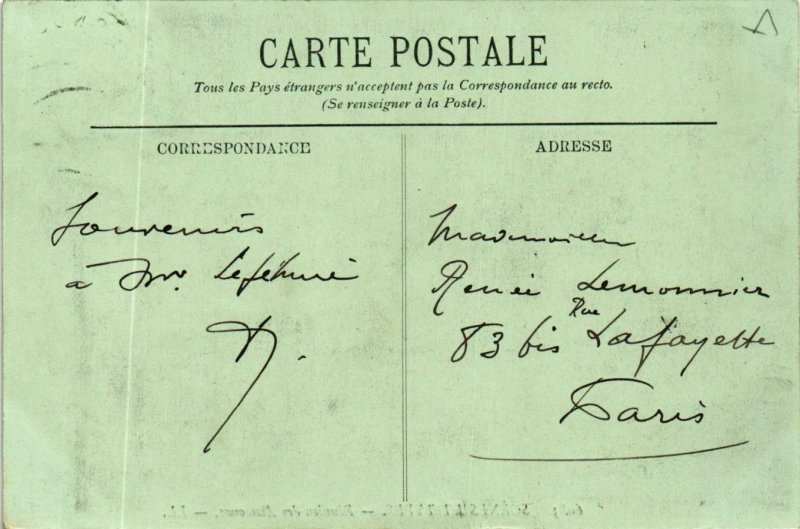 CARTE POSTALE
Tous les Pays étrangers n'acceptent pas la Correspondance au recto.
(Se renseigner à la Poste).
CORRESPONDANCE
Souvenirs
à Mr. Lefébure
ADRESSE
Mademoiselle
Renée Lemonnier
83 bis Rue Lafayette
Paris